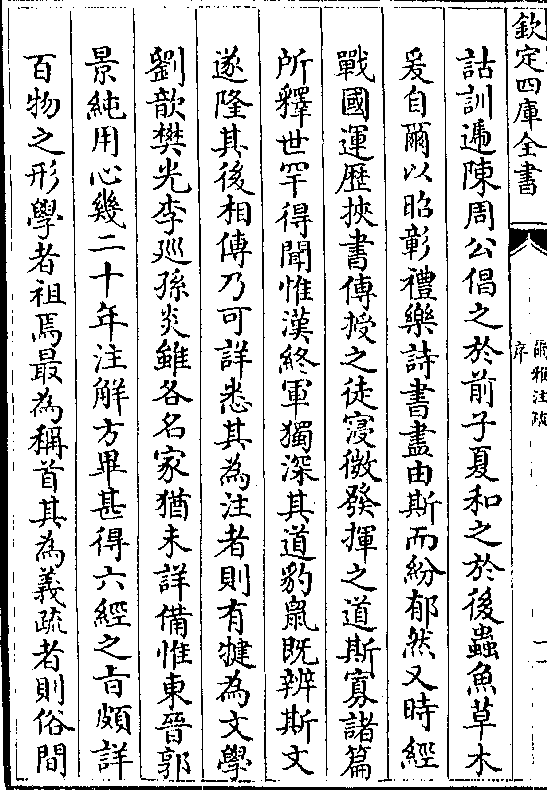 欽定四庫全書
爾雅注疏
序
二
詁訓遞陳周公倡之於前子夏和之於後蟲魚草木
爰自爾以昭彰禮樂詩書盡由斯而紛郁然又時經
戰國運歴挾書傳授之徒寖微發揮之道斯寡諸篇
所釋世罕得聞惟漢終軍獨深其道豹鼠既辨斯文
遂隆其後相傳乃可詳悉其為注者則有犍為文學
劉歆樊光李廵孫炎雖各名家猶未詳備惟東晉郭
景純用心幾二十年注解方畢甚得六經之旨頗詳
百物之形學者祖焉最為稱首其為義疏者則俗間